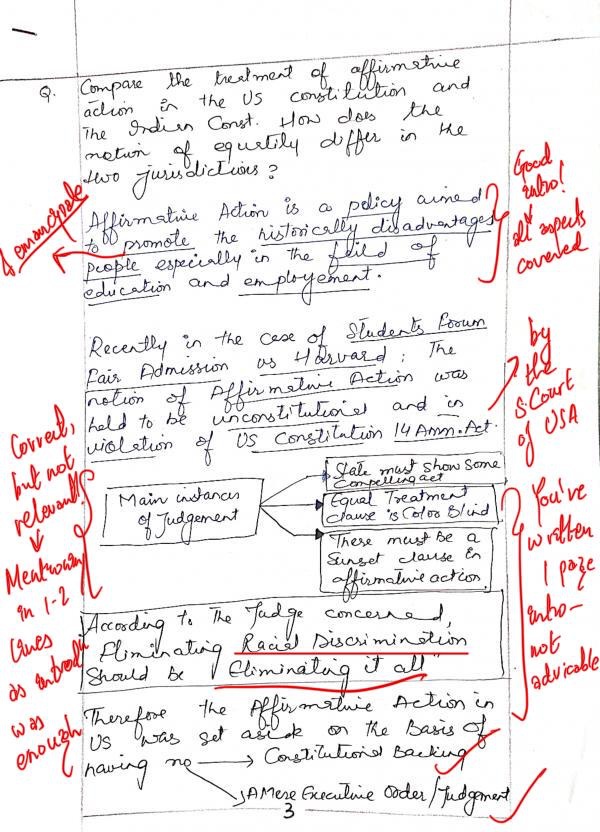 Q. Compare the treatment of affirmative
action in the US constitution and
The Indian Const. How does the
notion of equality differ in the
two jurisdictions?
emancipate
Affirmative Action is a policy aimed
to promote the historically disadvantages
people especially in the feild of
education and employement.
Good
intro!
all aspects
covered
Recently in the case of Students Forum
Fair Admission vs Harvard; The
notion of Affirmative Action was
held to be unconstitutional and in
violation of US Constitution 14 Amn. Act.
by
the
S. Court
of USA
Correct,
but not
relevant!
Mentioning
in 1-2
lines
as introdn
was
enough
Main instances
of Judgement
State must show some
Compelling act
Equal Treatment
clause is Color Blind
There must be a
Sunset clause in
affirmative action.
You've
written
1 page
intro-
not
advicable
According to The Judge concerned,
"Eliminating Racial Discrimination
Should be Eliminating it all"
Therefore the Affirmative Action in
US was set aside on the Basis of
having no Constitutional Backing
A Mere Executive Order/Judgement
3